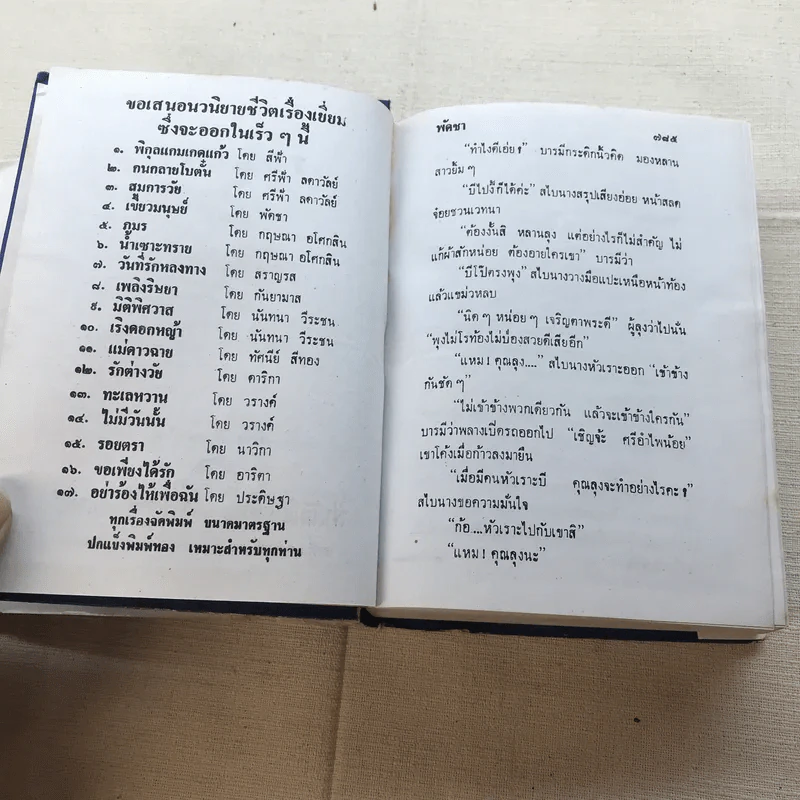 ขอเสนอนวนิยายชีวิตเรื่องเยี่ยม
ซึ่งจะออกในเร็ว ๆ นี้
๑. พิกุลแกมเกดแก้ว โดย สีฟ้า
๒. คนกลายใบตั๋น โดย ศรีฟ้า ลดาวัลย์
๓. สมการวัย โดย ศรีฟ้า ลดาวัลย์
๔. เขี้ยวมนุษย์ โดย พัดชา
๕. ภมร โดย กฤษณา อโศกสิน
๖. น้ำเซาะทราย โดย กฤษณา อโศกสิน
๗. วันที่รักหลงทาง โดย สราญรส
๘. เพลิงริษยา โดย กันยามาส
๙. มิติพิศวาส โดย นันทนา วีระชน
๑๐. เริงดอกหญ้า โดย นันทนา วีระชน
๑๑. แม่ดาวฉาย โดย ทัศนีย์ สีทอง
๑๒. รักต่างวัย โดย ดาริกา
๑๓. ทะเลหวาน โดย วรางค์
๑๔. ไม่มีวันนั้น โดย วรางค์
๑๕. รอยตรา โดย นาวิกา
๑๖. ขอเพียงได้รัก โดย อาริตา
๑๗. อย่าร้องไห้เพื่อฉัน โดย ประดิษฐา
ทุกเรื่องจัดพิมพ์ ขนาดมาตรฐาน
ปกแข็งพิมพ์ทอง เหมาะสำหรับทุกท่าน
พัดชา ๗๘๕
“ทำไงดีเอ่ย?” บารมีกระดิกนิ้วคิด มองหลาน
สาวยิ้ม ๆ
“บีไปวี้ก็ได้ค่ะ” สไบนางสรุปเสียงอ่อย หน้าสลด
จ๋อยชวนเวทนา
“ต้องงั้นสิ หลานลุง แต่อย่างไรก็ไม่สำคัญ ไม่
แก้ผ้าสักหน่อย ต้องอายใครเขา” บารมีว่า
“บีโป๊ตรงพุง” สไบนางวางมือแปะเหนือหน้าท้อง
แล้วแขม่วหลบ
“นิด ๆ หน่อย ๆ เจริญตาพระดี” ผู้ลุงว่าไปนั่น
“พุงไม่โรท้องไม่ป่องสวยดีเสียอีก”
“แหม! คุณลุง....” สไบนางหัวเราะออก “เข้าข้าง
กันชัด ๆ”
“ไม่เข้าข้างพวกเดียวกัน แล้วจะเข้าข้างใครกัน”
บารมีว่าพลางเปิดรถออกไป “เชิญจ้ะ ศรีอำไพน้อย”
เขาโค้งเมื่อก้าวลงมายืน
“เมื่อมีคนหัวเราะบี คุณลุงจะทำอย่างไรคะ?”
สไบนางขอความมั่นใจ
“ก้อ...หัวเราะไปกับเขาสิ”
“แหม! คุณลุงนะ”